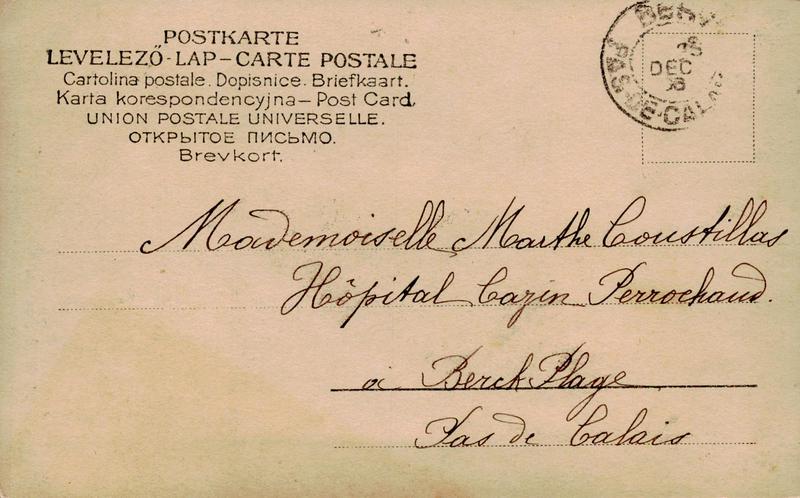 POSTKARTE
LEVELEZŐ-LAP–CARTE POSTALE
Cartolina postale. Dopisnice. Briefkaart.
Karta korespondencyjna – Post Card.
UNION POSTALE UNIVERSELLE.
ОТКРЫТОЕ ПИСЬМО.
Brevkort.
DEC
PAS-DE-CALAIS
Mademoiselle Marthe Coustillas
Hôpital Cazin Perrochaud.
à Berck Plage
Pas de Calais